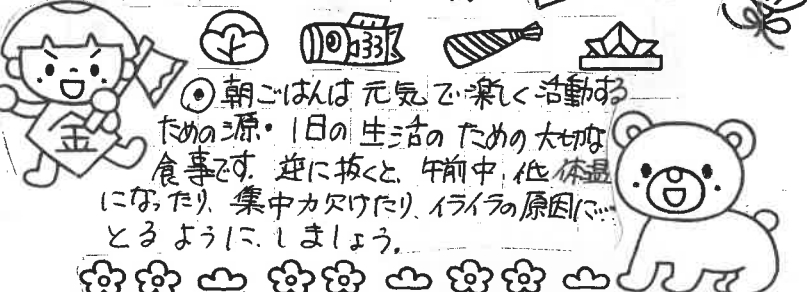 金
◉朝ごはんは元気で楽しく活動する
ための源・1日の生活のための大切な
食事です。逆に抜くと、午前中、低体温
になったり、集中力欠けたり、イライラの原因に…
とるようにしましょう。